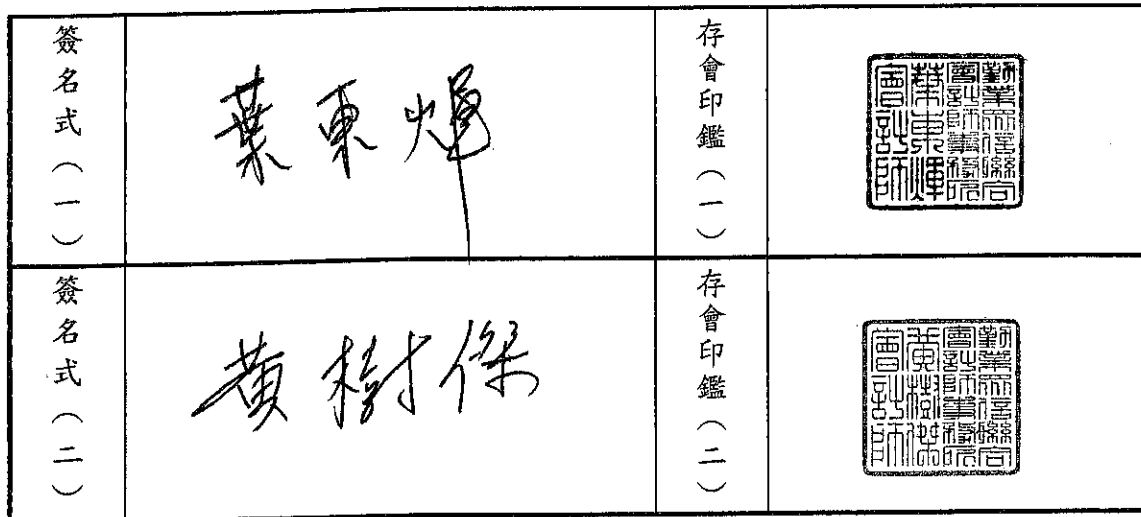 簽名式（一）
葉東煇
存會印鑑（一）
勤業眾信聯合
會計師事務所
葉東煇
會計師
簽名式（二）
黃樹傑
存會印鑑（二）
勤業眾信聯合
會計師事務所
黃樹傑
會計師